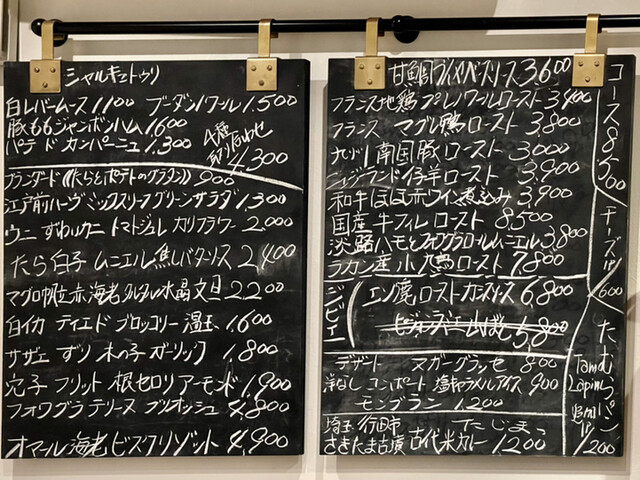 シャルキュトゥリ
白レバームース 1100 ブーダンノワール 1,500
豚ももジャンボンハム 1,600
パテドカンパーニュ 1,300
4種
取り合わせ
4,300
ブランダード《(たらとポテトのグラタン)》 900
江戸前ハーヴミックスリーフグリーンサラダ 1,300
ウニ ずわいカニ トマトジュレ カリフラワー 2,000
たら白子 ムニエル焦しバターソース 2,400
マグロ 赤海老タルタル水晶文旦 2,200
白イカ ティエド ブロッコリー 温玉 1,600
サザエ ずり 木の子 ガーリック 1,800
穴子 フリット 根セロリ アーモンド 1,900
フォワグラ テリーヌ ブリオッシュ 4,800
オマール海老ビスクリゾット 4,900
甘鯛ブイヤベースソース 3,600
フランス地鶏 ロースト 3,400
フランス マグレ鴨 ロースト 3,800
九州 南国豚 ロースト 3,000
ニュージランド仔羊 ロースト 3,900
和牛ほほ赤ワイン煮込み 3,900
国産牛フィレ ロースト 8,500
淡路ハモとフォワグラロールムニエル 3,800
ラカン産 小鳩 ロースト 7,800
ジビエ
エゾ鹿 ロースト カシスソース 6,800
5,800
デザート ヌガーグラッセ 800
洋なし コンポート 塩キャラメルアイス 900
モンブラン 1200
埼玉 行田市 たじま
さきたま古墳 古代米カレー 1,200
コース 8,500
チーズ 1P 600
たむらパン
Tamu
Lapin
追加 1P
1/200